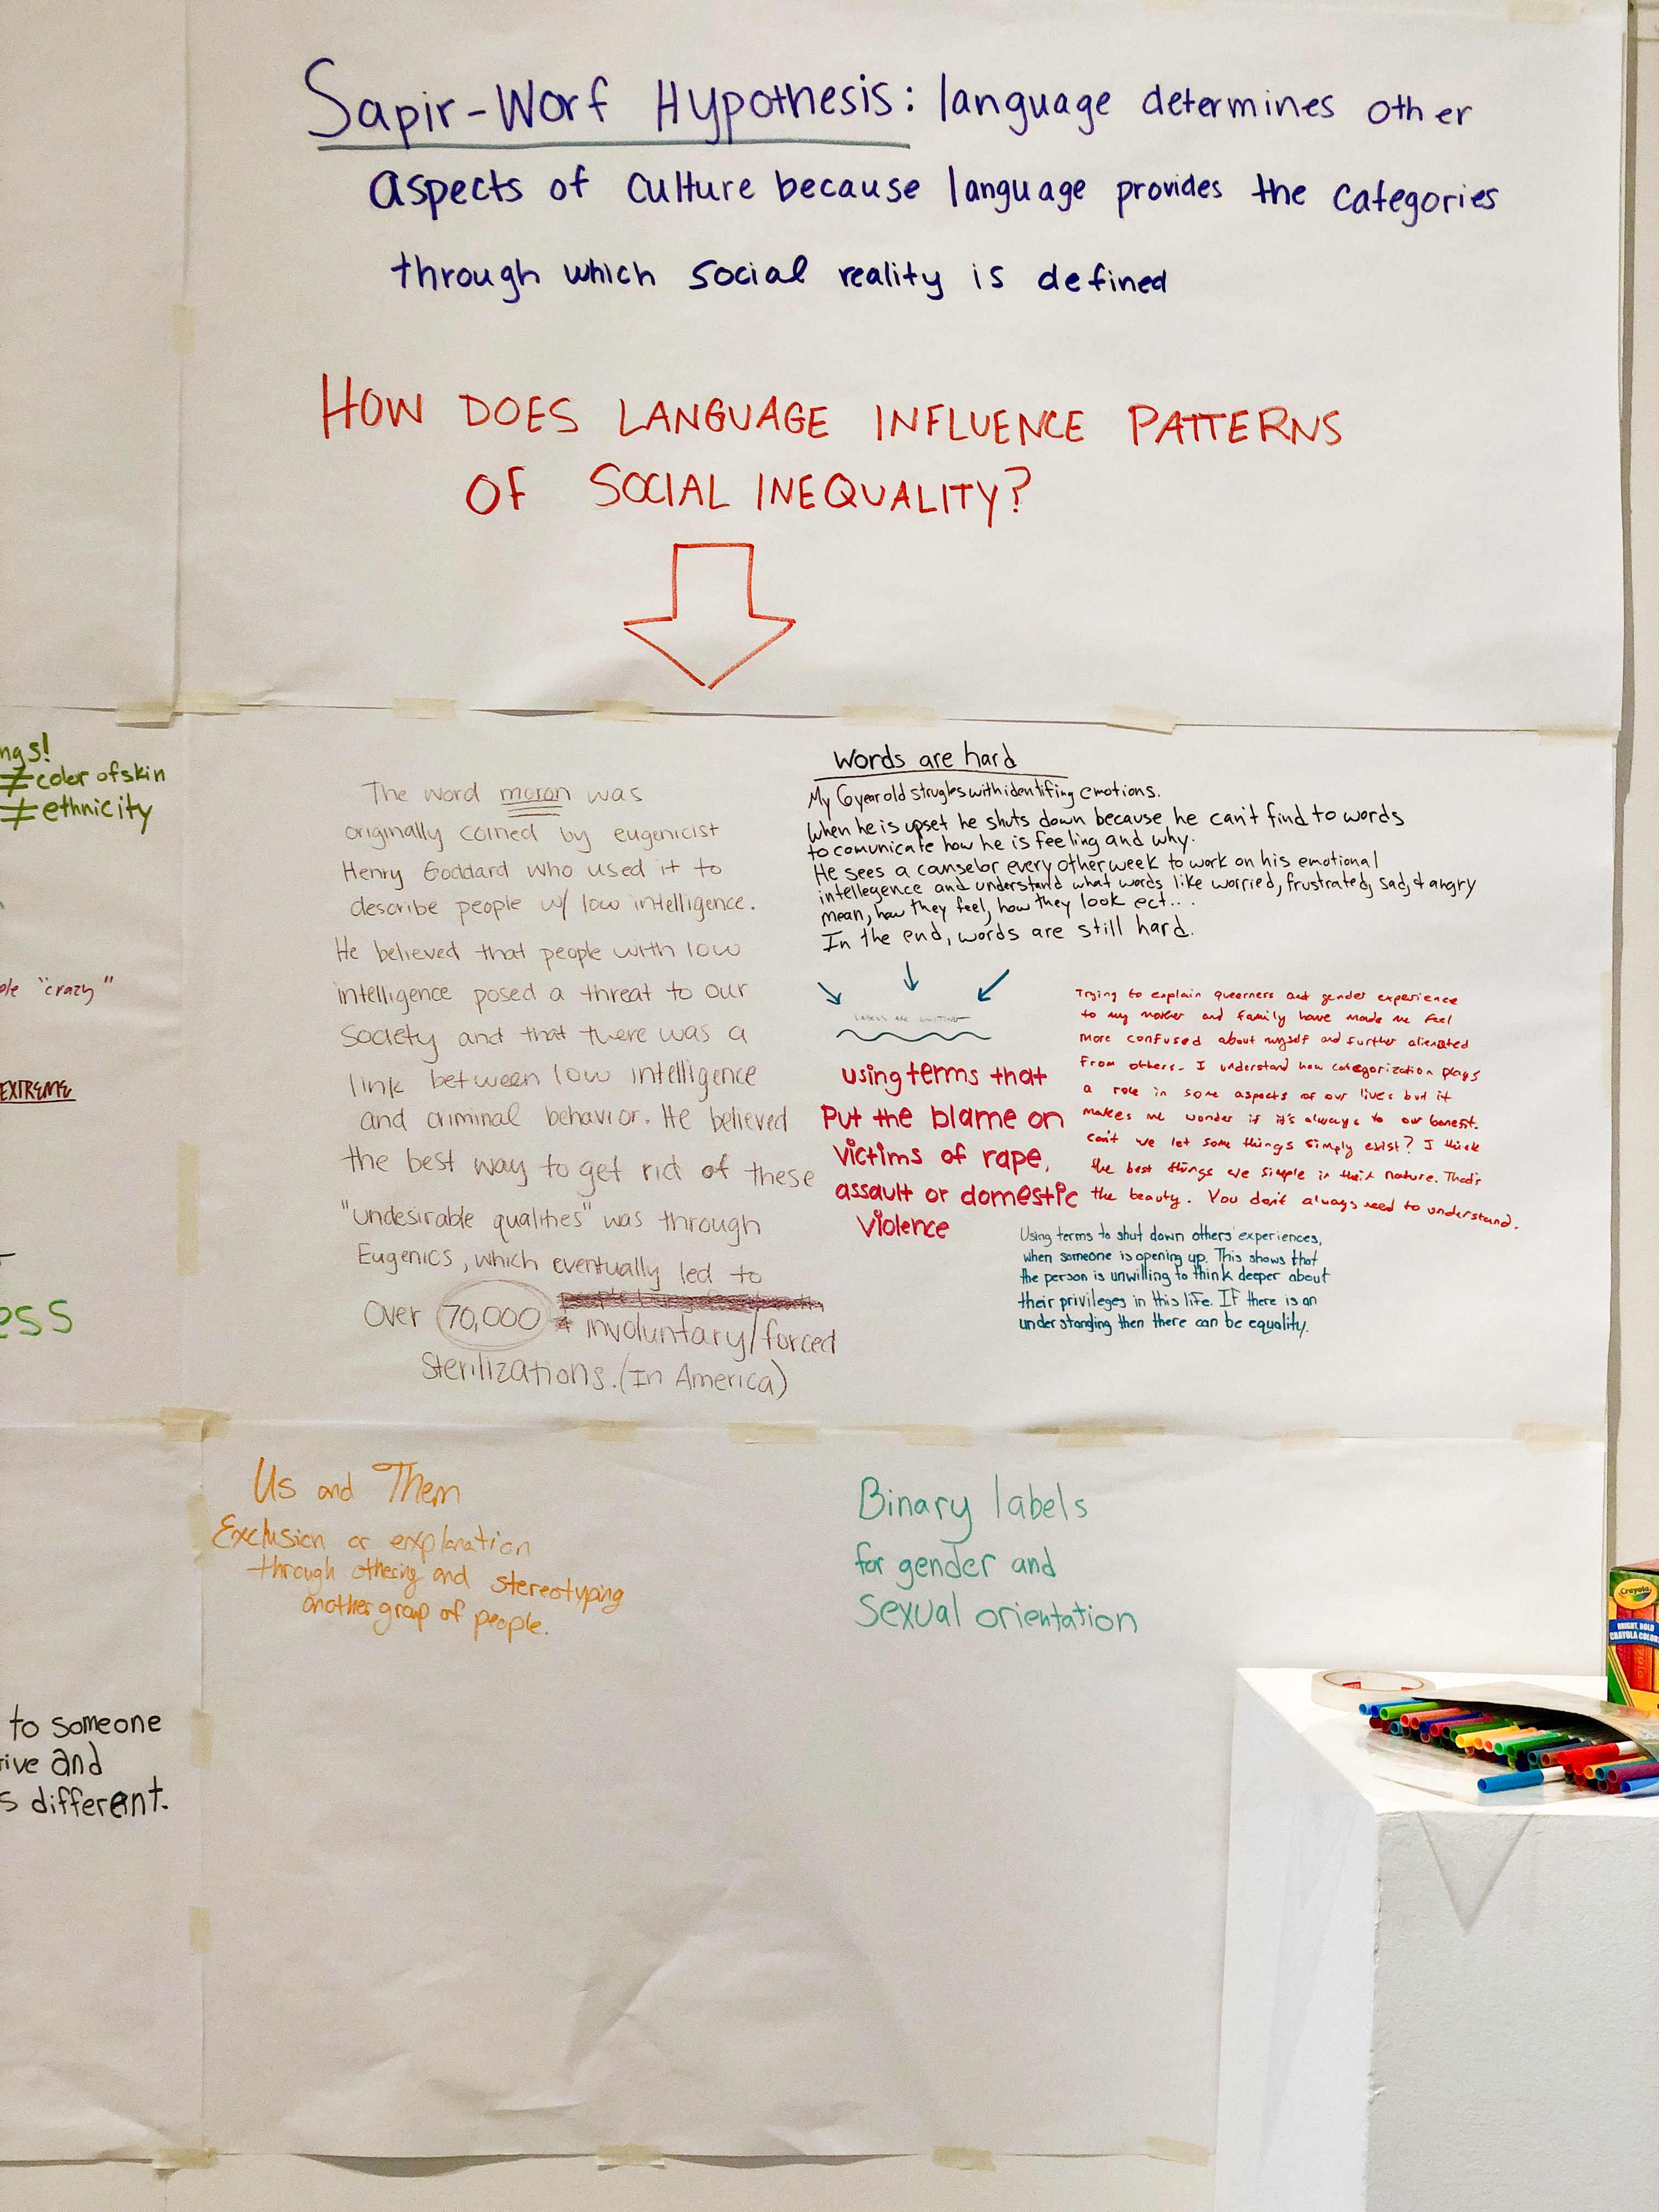 Sapir-Worf Hypothesis: language determines other
aspects of culture because language provides the categories
through which social reality is defined
HOW DOES LANGUAGE INFLUENCE PATTERNS
OF SOCIAL INEQUALITY?
ngs!
≠color of skin
≠ethnicity
ple "crazy"
EXTREME
ess
to someone
ive and
s different.
The word moron was
originally coined by eugenicist
Henry Goddard who used it to
describe people w/ low intelligence.
He believed that people with low
intelligence posed a threat to our
society and that there was a
link between low intelligence
and criminal behavior. He believed
the best way to get rid of these
"undesirable qualities" was through
Eugenics, which eventually led to
Over 70,000 * involuntary/forced
Sterilizations. (In America)
Words are hard
My 6 year old strugles with identifing emotions.
When he is upset he shuts down because he can't find to words
to comunicate how he is feeling and why.
He sees a canselor every other week to work on his emotional
intellegence and understand what words like worried, frustrated, sad, & angry
mean, how they feel, how they look ect...
In the end, words are still hard.
LABELS ARE
using terms that
Put the blame on
victims of rape,
assault or domestic
violence
Trying to explain queerness and gender experience
to my mother and family have made me feel
more confused about myself and further alienated
from others. I understand how categorization plays
a role in some aspects of our lives but it
makes me wonder if it's always to our benefit.
can't we let some things simply exist? I think
the best things are simple in their nature. That's
the beauty. You don't always need to understand.
Using terms to shut down others' experiences,
when someone is opening up. This shows that
the person is unwilling to think deeper about
their privileges in this life. IF there is an
understanding then there can be equality.
Us and Them
Exclusion or explanation
through othering and stereotyping
another group of people.
Binary labels
for gender and
Sexual orientation
Crayola
BRIGHT, BOLD
CRAYOLA COLOR